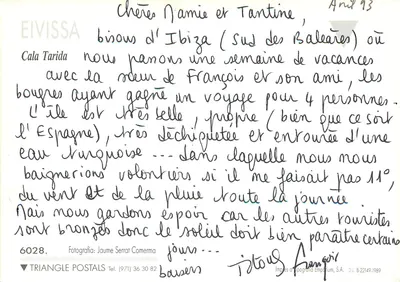 Avril 93
Chères Mamie et Tantine,
EIVISSA
bisous d'Ibiza (sud des Baléares) où
Cala Tarida
nous passons une semaine de vacances
avec la sœur de François et son ami, les
bougres ayant gagné un voyage pour 4 personnes.
L'île est très belle, propre (bien que ce soit
l'Espagne), très déchiquetée et entourée d'une
eau turquoise... dans laquelle nous nous
baignerions volontiers si il ne faisait pas 11°,
du vent et de la pluie toute la journée.
Mais nous gardons espoir car les autres touristes
sont bronzés donc le soleil doit bien paraître certains
6028.
Fotografía: Jaume Serrat
jours...
TRIANGLE POSTALS Tel. (971) 36 30 82
baisers
François